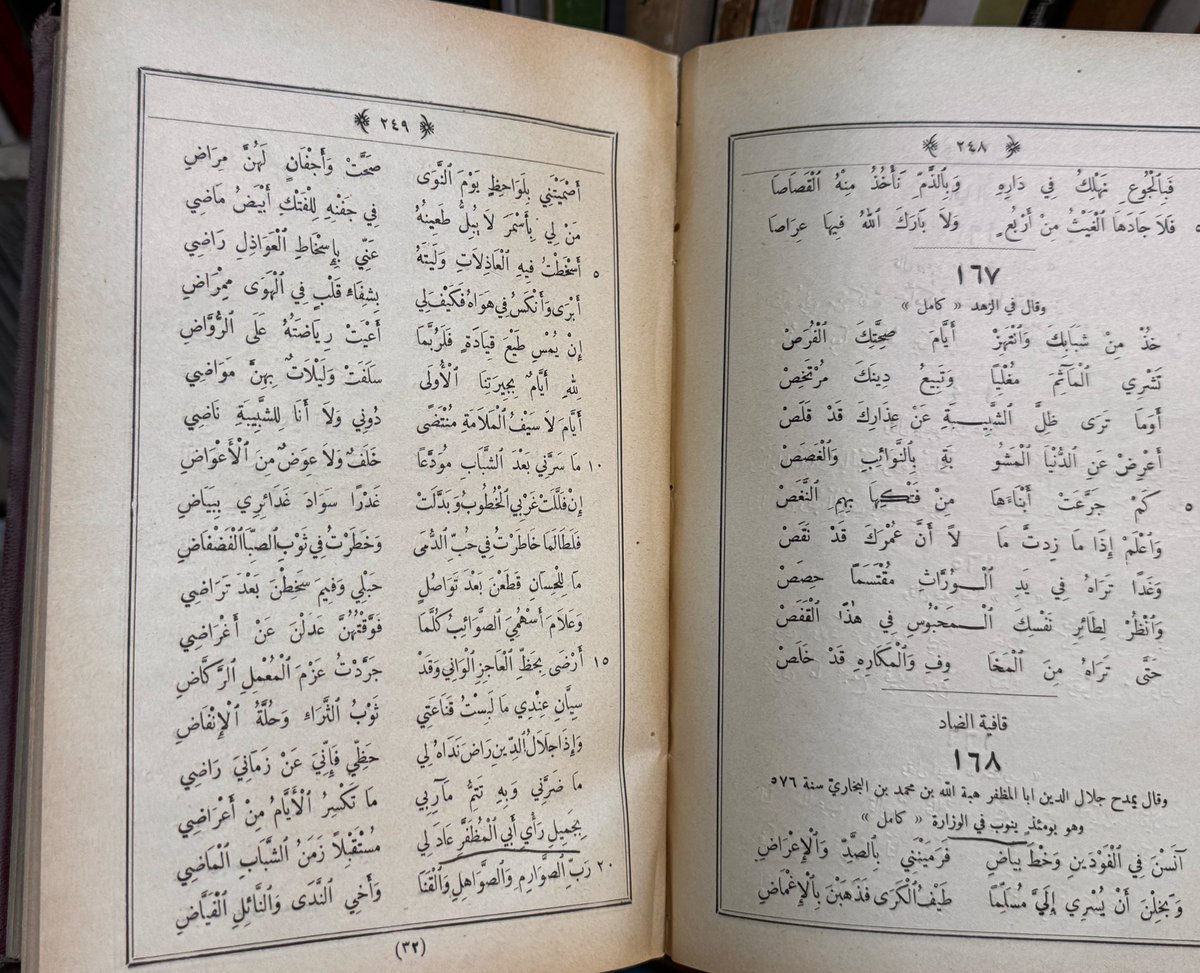 ٢٤٨
فَبِٱلْجُوعِ نَهْلِكُ فِي دَارِهِ وَبِٱلذَّمِّ نَأْخُذُ مِنْهُ ٱلْقَصَاصَا
٥ فَلَا جَادَهَا ٱلْغَيْثُ مِنْ أَرْبُعٍ وَلَا بَارَكَ ٱللهُ فِيهَا عِرَاصَا
١٦٧
وقال في الزهد « كامل »
خُذْ مِنْ شَبَابِكَ وَٱنْتَهِزْ أَيَّامَ صِحَّتِكَ ٱلْفُرَصْ
تَشْرِي ٱلْمَآثِمَ مُغْلِيًا وَتَبِيعُ دِينَكَ مُرْتَخِصْ
أَوَمَا تَرَى ظِلَّ ٱلشَّبِيبَةِ عَنْ عِذَارِكَ قَدْ قَلَصْ
أَعْرِضْ عَنِ ٱلدُّنْيَا ٱلْمَشُو بَةِ بِٱلنَّوَائِبِ وَٱلْغَصَصْ
٥ كَمْ جَرَّعَتْ أَبْنَاءَهَا مِنْ فَتْكِهَا بِهِمِ ٱلنَّغَصْ
وَٱعْلَمْ إِذَا مَا زِدتَّ مَا لًا أَنَّ عُمْرَكَ قَدْ نَقَصْ
وَغَدًا تَرَاهُ فِي يَدِ ٱلْوُرَّاثِ مُقْتَسَمًا حِصَصْ
وَٱنْظُرْ لِطَائِرِ نَفْسِكَ ٱلْمَحْبُوسِ فِي هٰذَا ٱلْقَفَصْ
حَتَّى تَرَاهُ مِنَ ٱلْمَخَا وِفِ وَٱلْمَكَارِهِ قَدْ خَلَصْ
قافية الضاد
١٦٨
وقال يمدح جلال الدين ابا المظفر هبة الله بن محمد بن البخاريّ سنة ٥٧٦
وهو يومئذٍ ينوب في الوزارة « كامل »
آنَسْنَ فِي ٱلْفَوْدَيْنِ وَخْطَ بَيَاضِ فَرَمَيْنَنِي بِٱلصَّدِّ وَٱلْإِعْرَاضِ
وَبَخِلْنَ أَنْ يُسْرِي إِلَيَّ مُسَلِّمًا طَيْفُ ٱلْكَرَى فَذَهَبْنَ بِٱلْإِغْمَاضِ
٢٤٩
أَصْمَيْتْنِي بِلَوَاحِظٍ يَوْمَ ٱلنَّوَى صَحَّتْ وَأَجْفَانٍ لَهُنَّ مِرَاضِ
مَنْ لِي بِأَسْمَرَ لَا يُبِلُّ طَعِينُهُ فِي جَفْنِهِ لِلْفَتْكِ أَبْيَضُ مَاضِي
٥ أَسْخَطْتُ فِيهِ ٱلْعَاذِلَاتِ وَلَيْتَهُ عَنِّي بِإِسْخَاطِ ٱلْعَوَاذِلِ رَاضِي
أَبْرَى وَأَنْكَسُ فِي هَوَاهُ فَكَيْفَ لِي بِشِفَاءِ قَلْبٍ فِي ٱلْهَوَى مِمْرَاضِ
إِنْ يُمْسِ طَيْعَ قِيَادَةٍ فَلَرُبَّمَا أَعْيَتْ رِيَاضَتُهُ عَلَى ٱلرُّوَّاضِ
لِلهِ أَيَّامٌ بِجِيرَتِنَا ٱلْأُولَى سَلَفَتْ وَلَيْلَاتٌ بِهِنَّ مَوَاضِي
أَيَّامَ لَا سَيْفُ ٱلْمَلَامَةِ مُنْتَضًى دُونِي وَلَا أَنَا لِلشَّبِيبَةِ نَاضِي
١٠ مَا سَرَّنِي بَعْدَ ٱلشَّبَابِ مُوَدِّعًا خَلَفٌ وَلَا عِوَضٌ مِنَ ٱلْأَعْوَاضِ
إِنْ فَلَّلَتْ غَرْبِي ٱلْخُطُوبُ وَبَدَّلَتْ غَدْرًا سَوَادَ غَدَائِرِي بِبَيَاضِ
فَلَطَالَمَا خَاطَرْتُ فِي حُبِّ ٱلدُّمَى وَخَطَرْتُ فِي ثَوْبِ ٱلصِّبَا ٱلْفَضْفَاضِ
مَا لِلْحِسَانِ قَطَعْنَ بَعْدَ تَوَاصُلٍ حَبْلِي وَفِيمَ سَخَطْنَ بَعْدَ تَرَاضِي
وَعَلَامَ أَسْهُمِيَ ٱلصَّوَائِبُ كُلَّمَا فَوَّقْتُهُنَّ عَدَلْنَ عَنْ أَغْرَاضِي
١٥ أَرْضَى بِحَظِّ ٱلْعَاجِزِ ٱلْوَانِي وَقَدْ جَرَّدْتُ عَزْمَ ٱلْمُعْمِلِ ٱلرَّكَّاضِ
سِيَّانِ عِنْدِي مَا لَبِسْتُ قَنَاعَتِي ثَوْبُ ٱلثَّرَاءِ وَحُلَّةُ ٱلْإِنْفَاضِ
وَإِذَا جَلَالُ ٱلدِّينِ رَاضَ نَدَاهُ لِي حَظِّي فَإِنِّيَ عَنْ زَمَانِيَ رَاضِي
مَا ضَرَّنِي وَبِهِ تَتِمُّ مَآرِبِي مَا تَكْسِرُ ٱلْأَيَّامُ مِنْ أَعْرَاضِي
بِجَمِيلِ رَأْيِ أَبِي ٱلْمُظَفَّرِ عَادَ لِي مُسْتَقْبِلًا زَمَنُ ٱلشَّبَابِ ٱلْمَاضِي
٢٠ رَبِّ ٱلصَّوَارِمِ وَٱلصَّوَاهِلِ وَٱلْقَنَا وَأَخِي ٱلنَّدَى وَٱلنَّائِلِ ٱلْفَيَّاضِ
(٣٢)